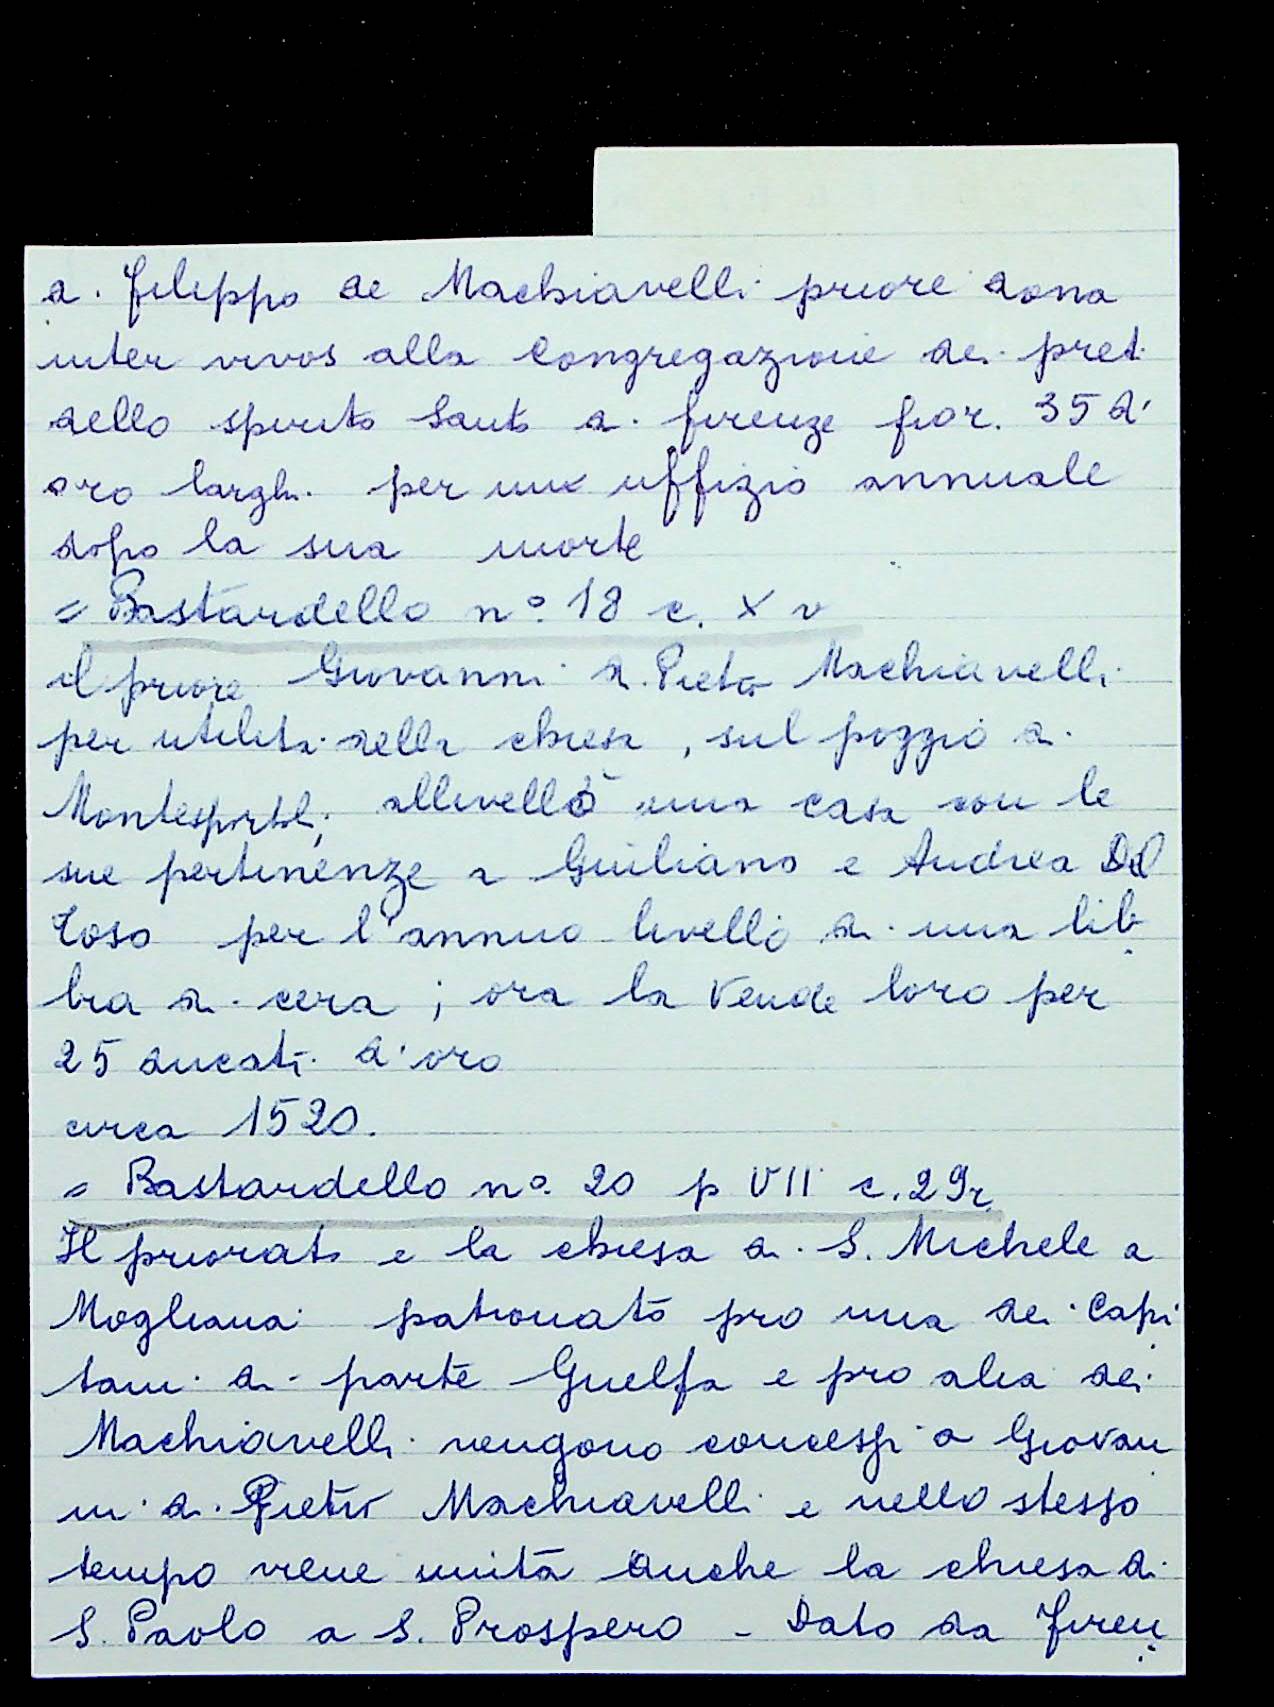 di Filippo de Machiavelli priore dona
inter vivos alla Congregazione dei preti
dello spirito Santo di firenze fior. 35 d'
oro larghi per un uffizio annuale
dopo la sua morte
= Bastardello n°. 18 c. X v
il priore Giovanni di Pietro Machiavelli
per utilità della chiesa, sul poggio di
Montespertoli, allivellò una casa con le
sue pertinenze a Giuliano e Andrea Del
Toso per l'annuo livello di una lib
bra di cera; ora la vende loro per
25 ducati d'oro
circa 1520.
= Bastardello n°. 20 p VII c. 29r
Il priorato e la chiesa di S. Michele a
Mogliana patronato pro una dei Capi
tani di parte Guelfa e pro alia dei
Machiavelli vengono concessi a Giovan
ni di Pietro Machiavelli e nello stesso
tempo viene unita anche la chiesa di
S. Paolo a S. Prospero - Dato da Firen